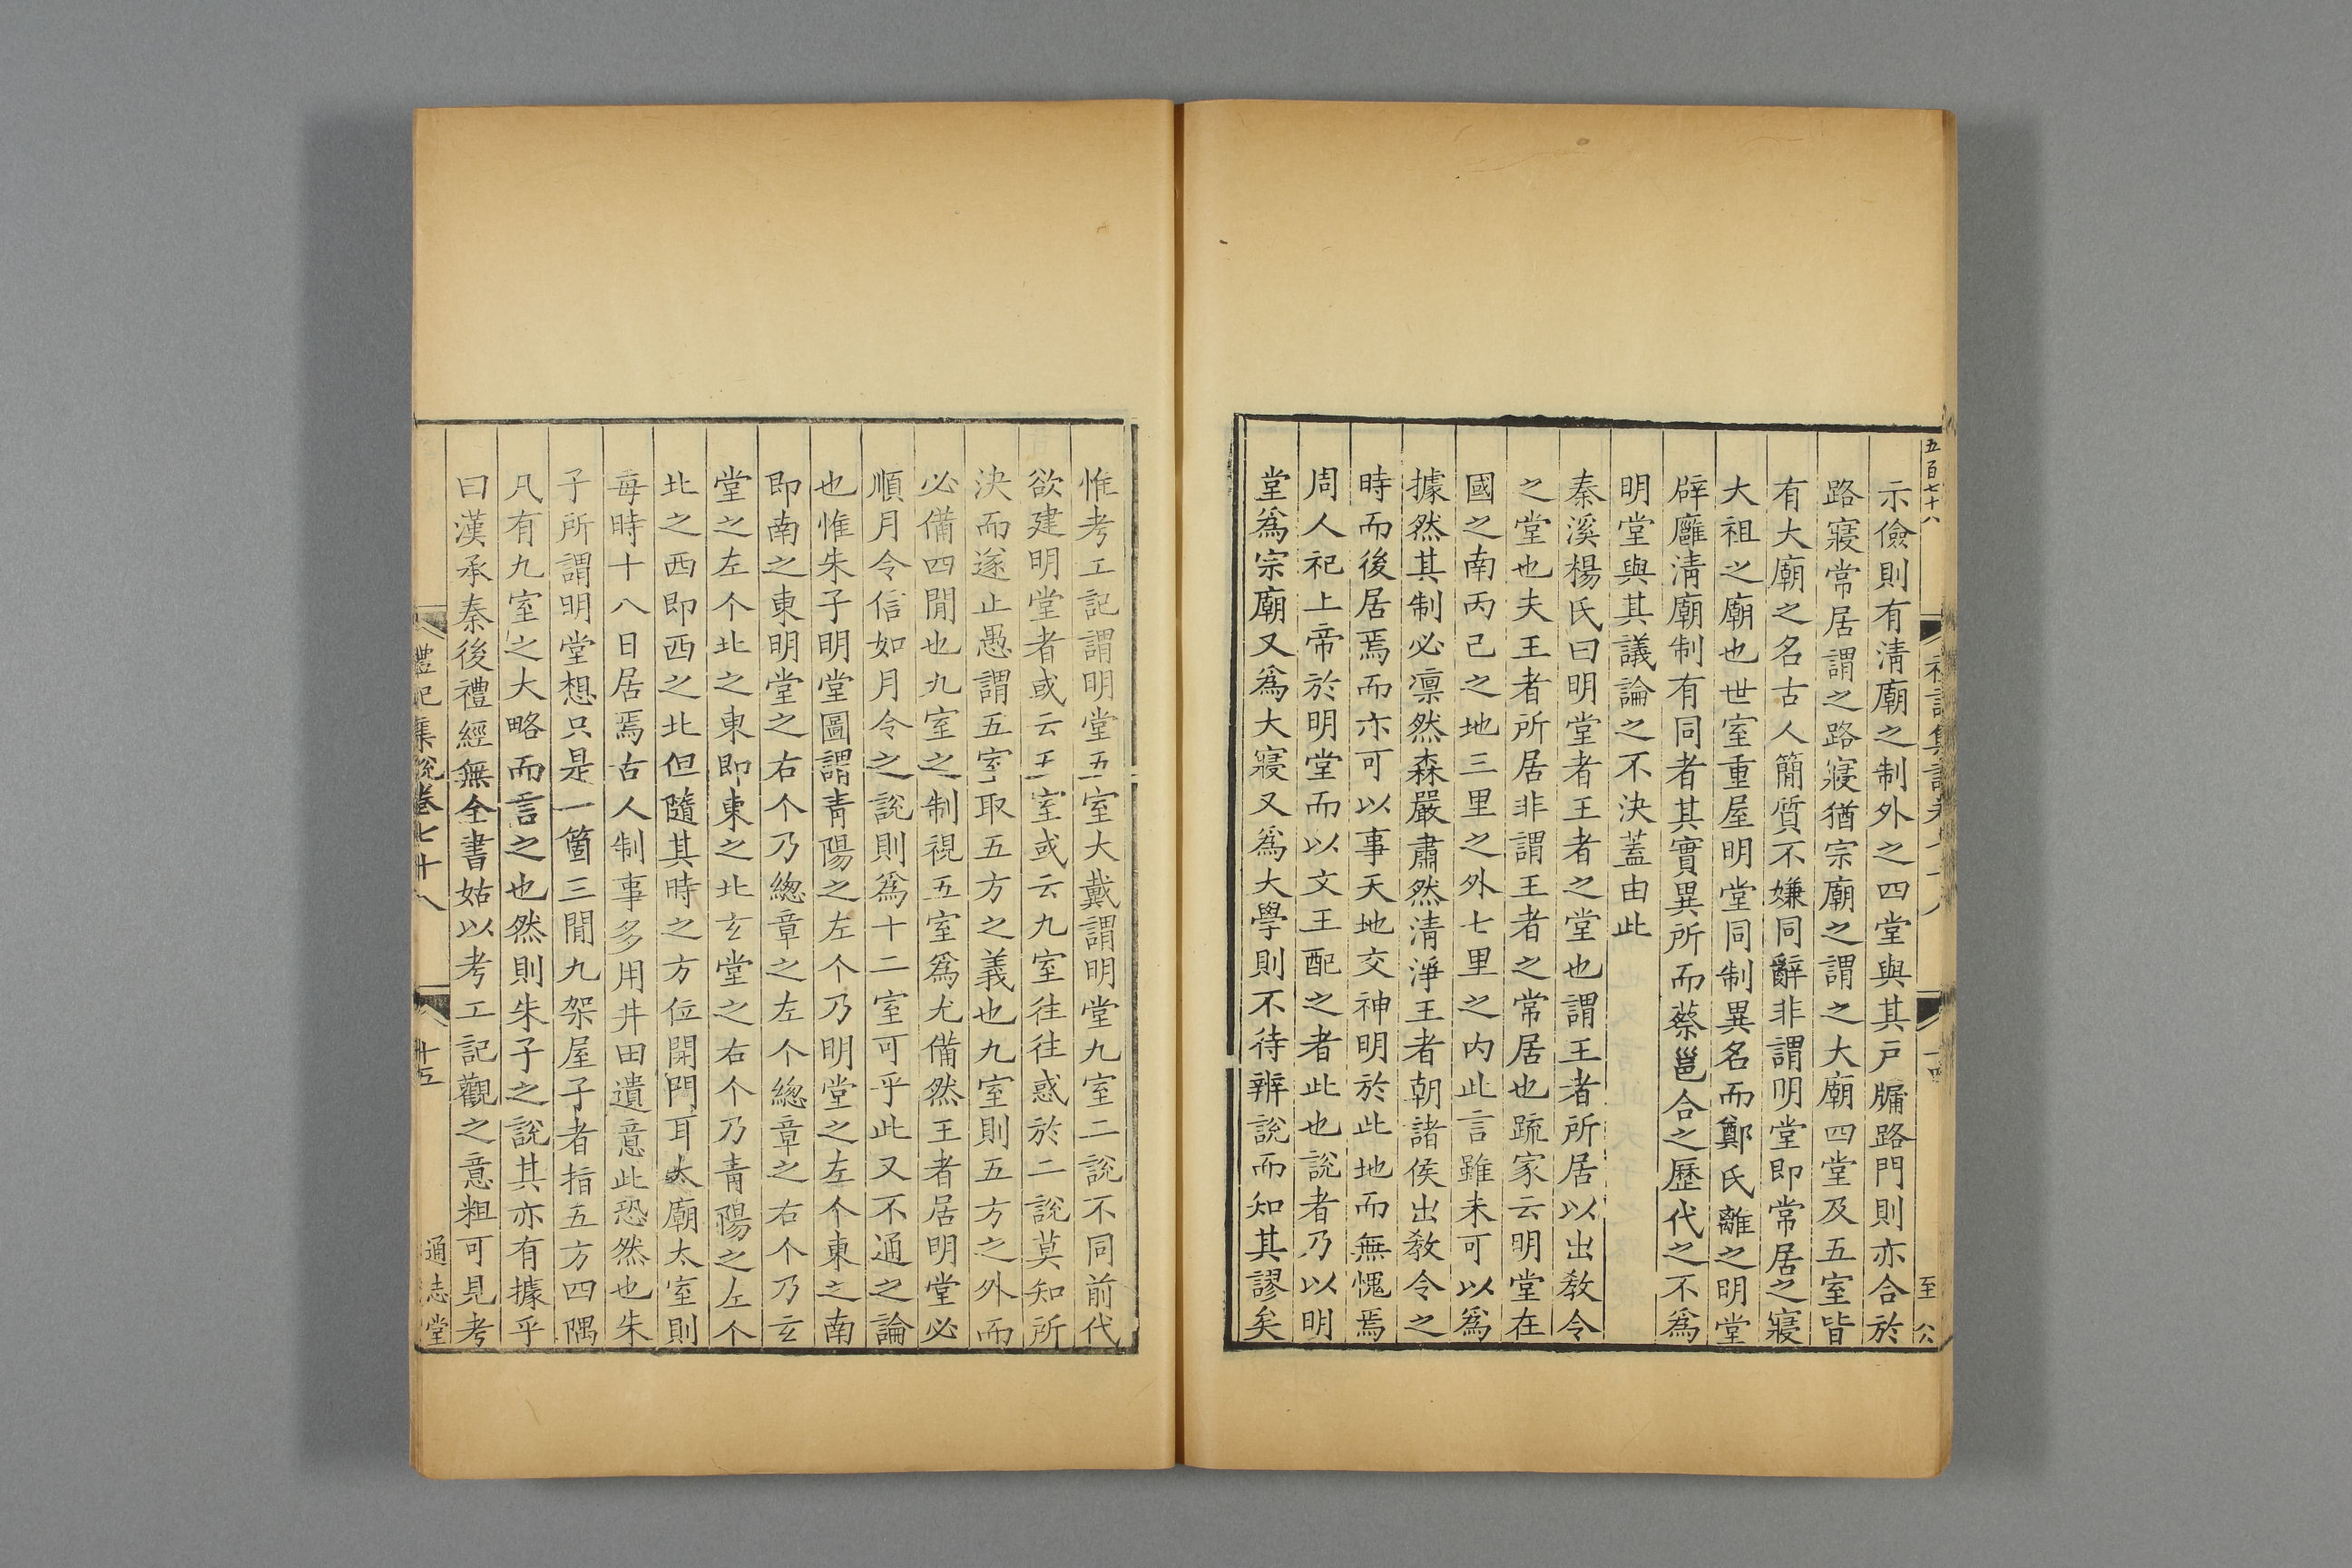 五百七十八
示儉則有淸廟之制外之四堂與其戸牖路門則亦合於
路寢常居謂之路寢猶宗廟之謂之大廟四堂及五室皆
有大廟之名古人簡質不嫌同辭非謂明堂即常居之寢
大祖之廟也世室重屋明堂同制異名而鄭氏離之明堂
辟廱淸廟制有同者其實異所而蔡邕合之歷代之不爲
明堂與其議論之不決蓋由此
秦溪楊氏曰明堂者王者之堂也謂王者所居以出敎令
之堂也夫王者所居非謂王者之常居也疏家云明堂在
國之南丙已之地三里之外七里之内此言雖未可以爲
據然其制必凛然森嚴肅然淸淨王者朝諸侯出敎令之
時而後居焉而亦可以事天地交神明於此地而無愧焉
周人祀上帝於明堂而以文王配之者此也說者乃以明
堂爲宗廟又爲大寢又爲大學則不待辨說而知其謬矣
惟考工記謂明堂五室大戴謂明堂九室二說不同前代
欲建明堂者或云五室或云九室往往惑於二說莫知所
決而遂止愚謂五室取五方之義也九室則五方之外而
必備四閒也九室之制視五室爲尤備然王者居明堂必
順月令信如月令之說則爲十二室可乎此又不通之論
也惟朱子明堂圖謂靑陽之左个乃明堂之左个東之南
即南之東明堂之右个乃緫章之左个緫章之右个乃玄
堂之左个北之東即東之北玄堂之右个乃靑陽之左个
北之西即西之北但隨其時之方位開門耳太廟太室則
每時十八日居焉古人制事多用井田遺意此恐然也朱
子所謂明堂想只是一箇三閒九架屋子者指五方四隅
凡有九室之大略而言之也然則朱子之說其亦有據乎
曰漢承秦後禮經無全書姑以考工記觀之意粗可見考
禮記集說卷七十八
十五
通志堂